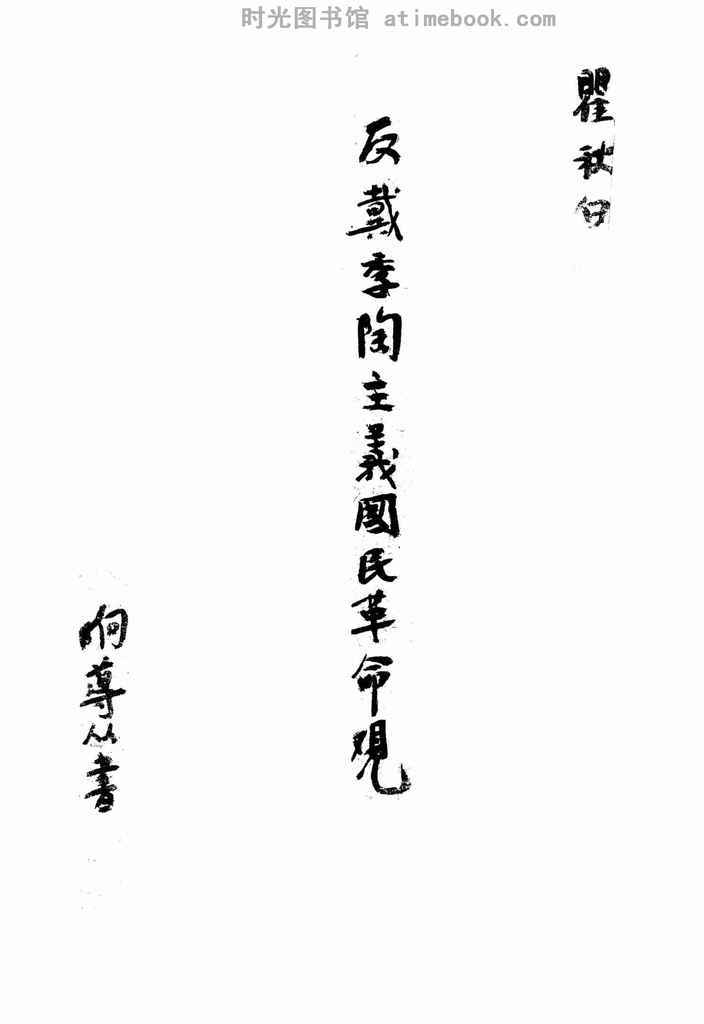 时光图书馆 atimebook.com
瞿秋白
反戴季陶主義國民革命观
向导丛書